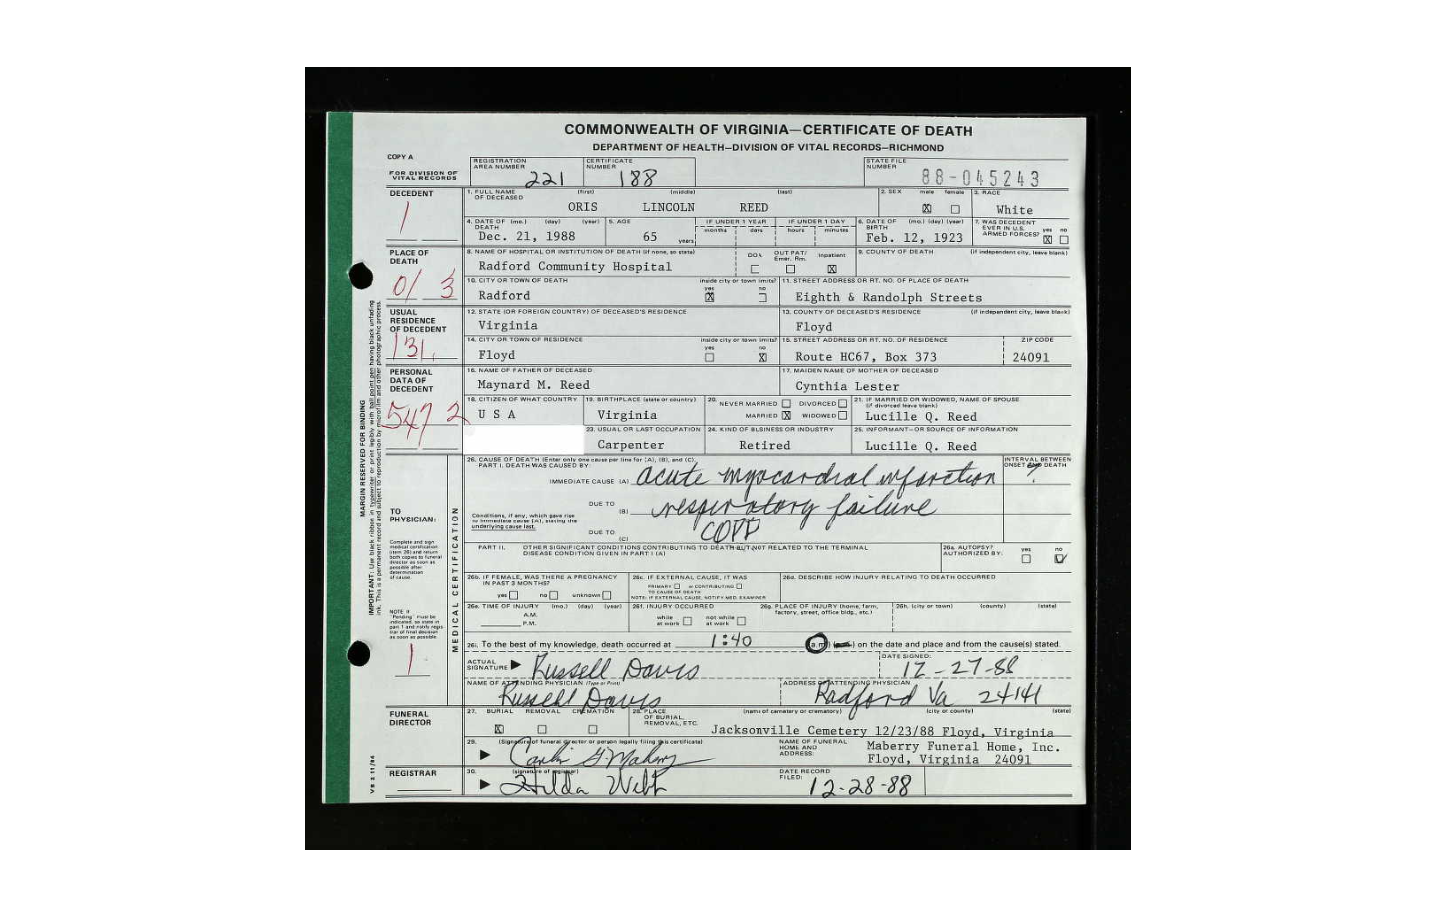 COMMONWEALTH OF VIRGINIA—CERTIFICATE OF DEATH
DEPARTMENT OF HEALTH—DIVISION OF VITAL RECORDS—RICHMOND
COPY A
FOR DIVISION OF VITAL RECORDS
REGISTRATION AREA NUMBER 221
CERTIFICATE NUMBER 188
STATE FILE NUMBER 88-045243
DECEDENT
1
1. FULL NAME OF DECEASED (first) (middle) (last)
ORIS LINCOLN REED
2. SEX male female X
3. RACE White
4. DATE OF DEATH (mo.) (day) (year) Dec. 21, 1988
5. AGE 65 years
IF UNDER 1 YEAR months days
IF UNDER 1 DAY hours minutes
6. DATE OF BIRTH (mo.) (day) (year) Feb. 12, 1923
7. WAS DECEDENT EVER IN U.S. ARMED FORCES? yes no X
PLACE OF DEATH
01 3
8. NAME OF HOSPITAL OR INSTITUTION OF DEATH (if none, so state)
Radford Community Hospital
DOA OUT PAT/ Emer. Rm. Inpatient X
9. COUNTY OF DEATH (if independent city, leave blank)
10. CITY OR TOWN OF DEATH Radford
inside city or town limits? yes no X
11. STREET ADDRESS OR RT. NO. OF PLACE OF DEATH
Eighth & Randolph Streets
USUAL RESIDENCE OF DECEDENT
131
12. STATE (OR FOREIGN COUNTRY) OF DECEASED'S RESIDENCE
Virginia
13. COUNTY OF DECEASED'S RESIDENCE (if independent city, leave blank)
Floyd
14. CITY OR TOWN OF RESIDENCE Floyd
inside city or town limits? yes no X
15. STREET ADDRESS OR RT. NO. OF RESIDENCE ZIP CODE
Route HC67, Box 373 24091
PERSONAL DATA OF DECEDENT
547 2
16. NAME OF FATHER OF DECEASED
Maynard M. Reed
17. MAIDEN NAME OF MOTHER OF DECEASED
Cynthia Lester
18. CITIZEN OF WHAT COUNTRY U S A
19. BIRTHPLACE (state or country) Virginia
20. NEVER MARRIED DIVORCED
MARRIED X WIDOWED
21. IF MARRIED OR WIDOWED, NAME OF SPOUSE (if divorced leave blank)
Lucille Q. Reed
23. USUAL OR LAST OCCUPATION Carpenter
24. KIND OF BUSINESS OR INDUSTRY Retired
25. INFORMANT—OR SOURCE OF INFORMATION Lucille Q. Reed
MARGIN RESERVED FOR BINDING
MEDICAL CERTIFICATION
26. CAUSE OF DEATH (Enter only one cause per line for (A), (B), and (C).
PART I. DEATH WAS CAUSED BY:
INTERVAL BETWEEN ONSET AND DEATH
IMMEDIATE CAUSE (A) acute myocardial infarction ?
DUE TO (B) respiratory failure
Conditions, if any, which gave rise to immediate cause (A), stating the underlying cause last.
DUE TO (C) COPD
PART II. OTHER SIGNIFICANT CONDITIONS CONTRIBUTING TO DEATH BUT NOT RELATED TO THE TERMINAL DISEASE CONDITION GIVEN IN PART I (A)
26a. AUTOPSY? AUTHORIZED BY: yes no
TO PHYSICIAN:
Complete and sign medical certification (item 26) and return both copies to funeral director as soon as possible after determination of cause.
NOTE: If "Pending" must be indicated, so state in part 1 and notify registrar of final decision as soon as possible.
1
26b. IF FEMALE, WAS THERE A PREGNANCY IN PAST 3 MONTHS?
yes no unknown
26c. IF EXTERNAL CAUSE, IT WAS
PRIMARY or CONTRIBUTING
TO CAUSE OF DEATH
NOTE: IF EXTERNAL CAUSE, NOTIFY MED. EXAMINER
26d. DESCRIBE HOW INJURY RELATING TO DEATH OCCURRED
26e. TIME OF INJURY (mo.) (day) (year)
A.M.
P.M.
26f. INJURY OCCURRED
while at work not while at work
26g. PLACE OF INJURY (home, farm, factory, street, office bldg., etc.)
26h. (city or town) (county) (state)
26i. To the best of my knowledge, death occurred at 1:40 (a.m.) on the date and place and from the cause(s) stated.
ACTUAL SIGNATURE Russell Davis
DATE SIGNED: 12-27-88
NAME OF ATTENDING PHYSICIAN (Type or Print) Russell Davis
ADDRESS OF ATTENDING PHYSICIAN Radford Va 24141
FUNERAL DIRECTOR
27. BURIAL REMOVAL CREMATION
X
28. PLACE OF BURIAL, REMOVAL, ETC. (name of cemetery or crematory) (city or county) (state)
Jacksonville Cemetery 12/23/88 Floyd, Virginia
29. (Signature of funeral director or person legally filing this certificate)
NAME OF FUNERAL HOME AND ADDRESS:
Maberry Funeral Home, Inc.
Floyd, Virginia 24091
REGISTRAR
30. (signature of registrar)
Hilda Webb
DATE RECORD FILED: 12-28-88